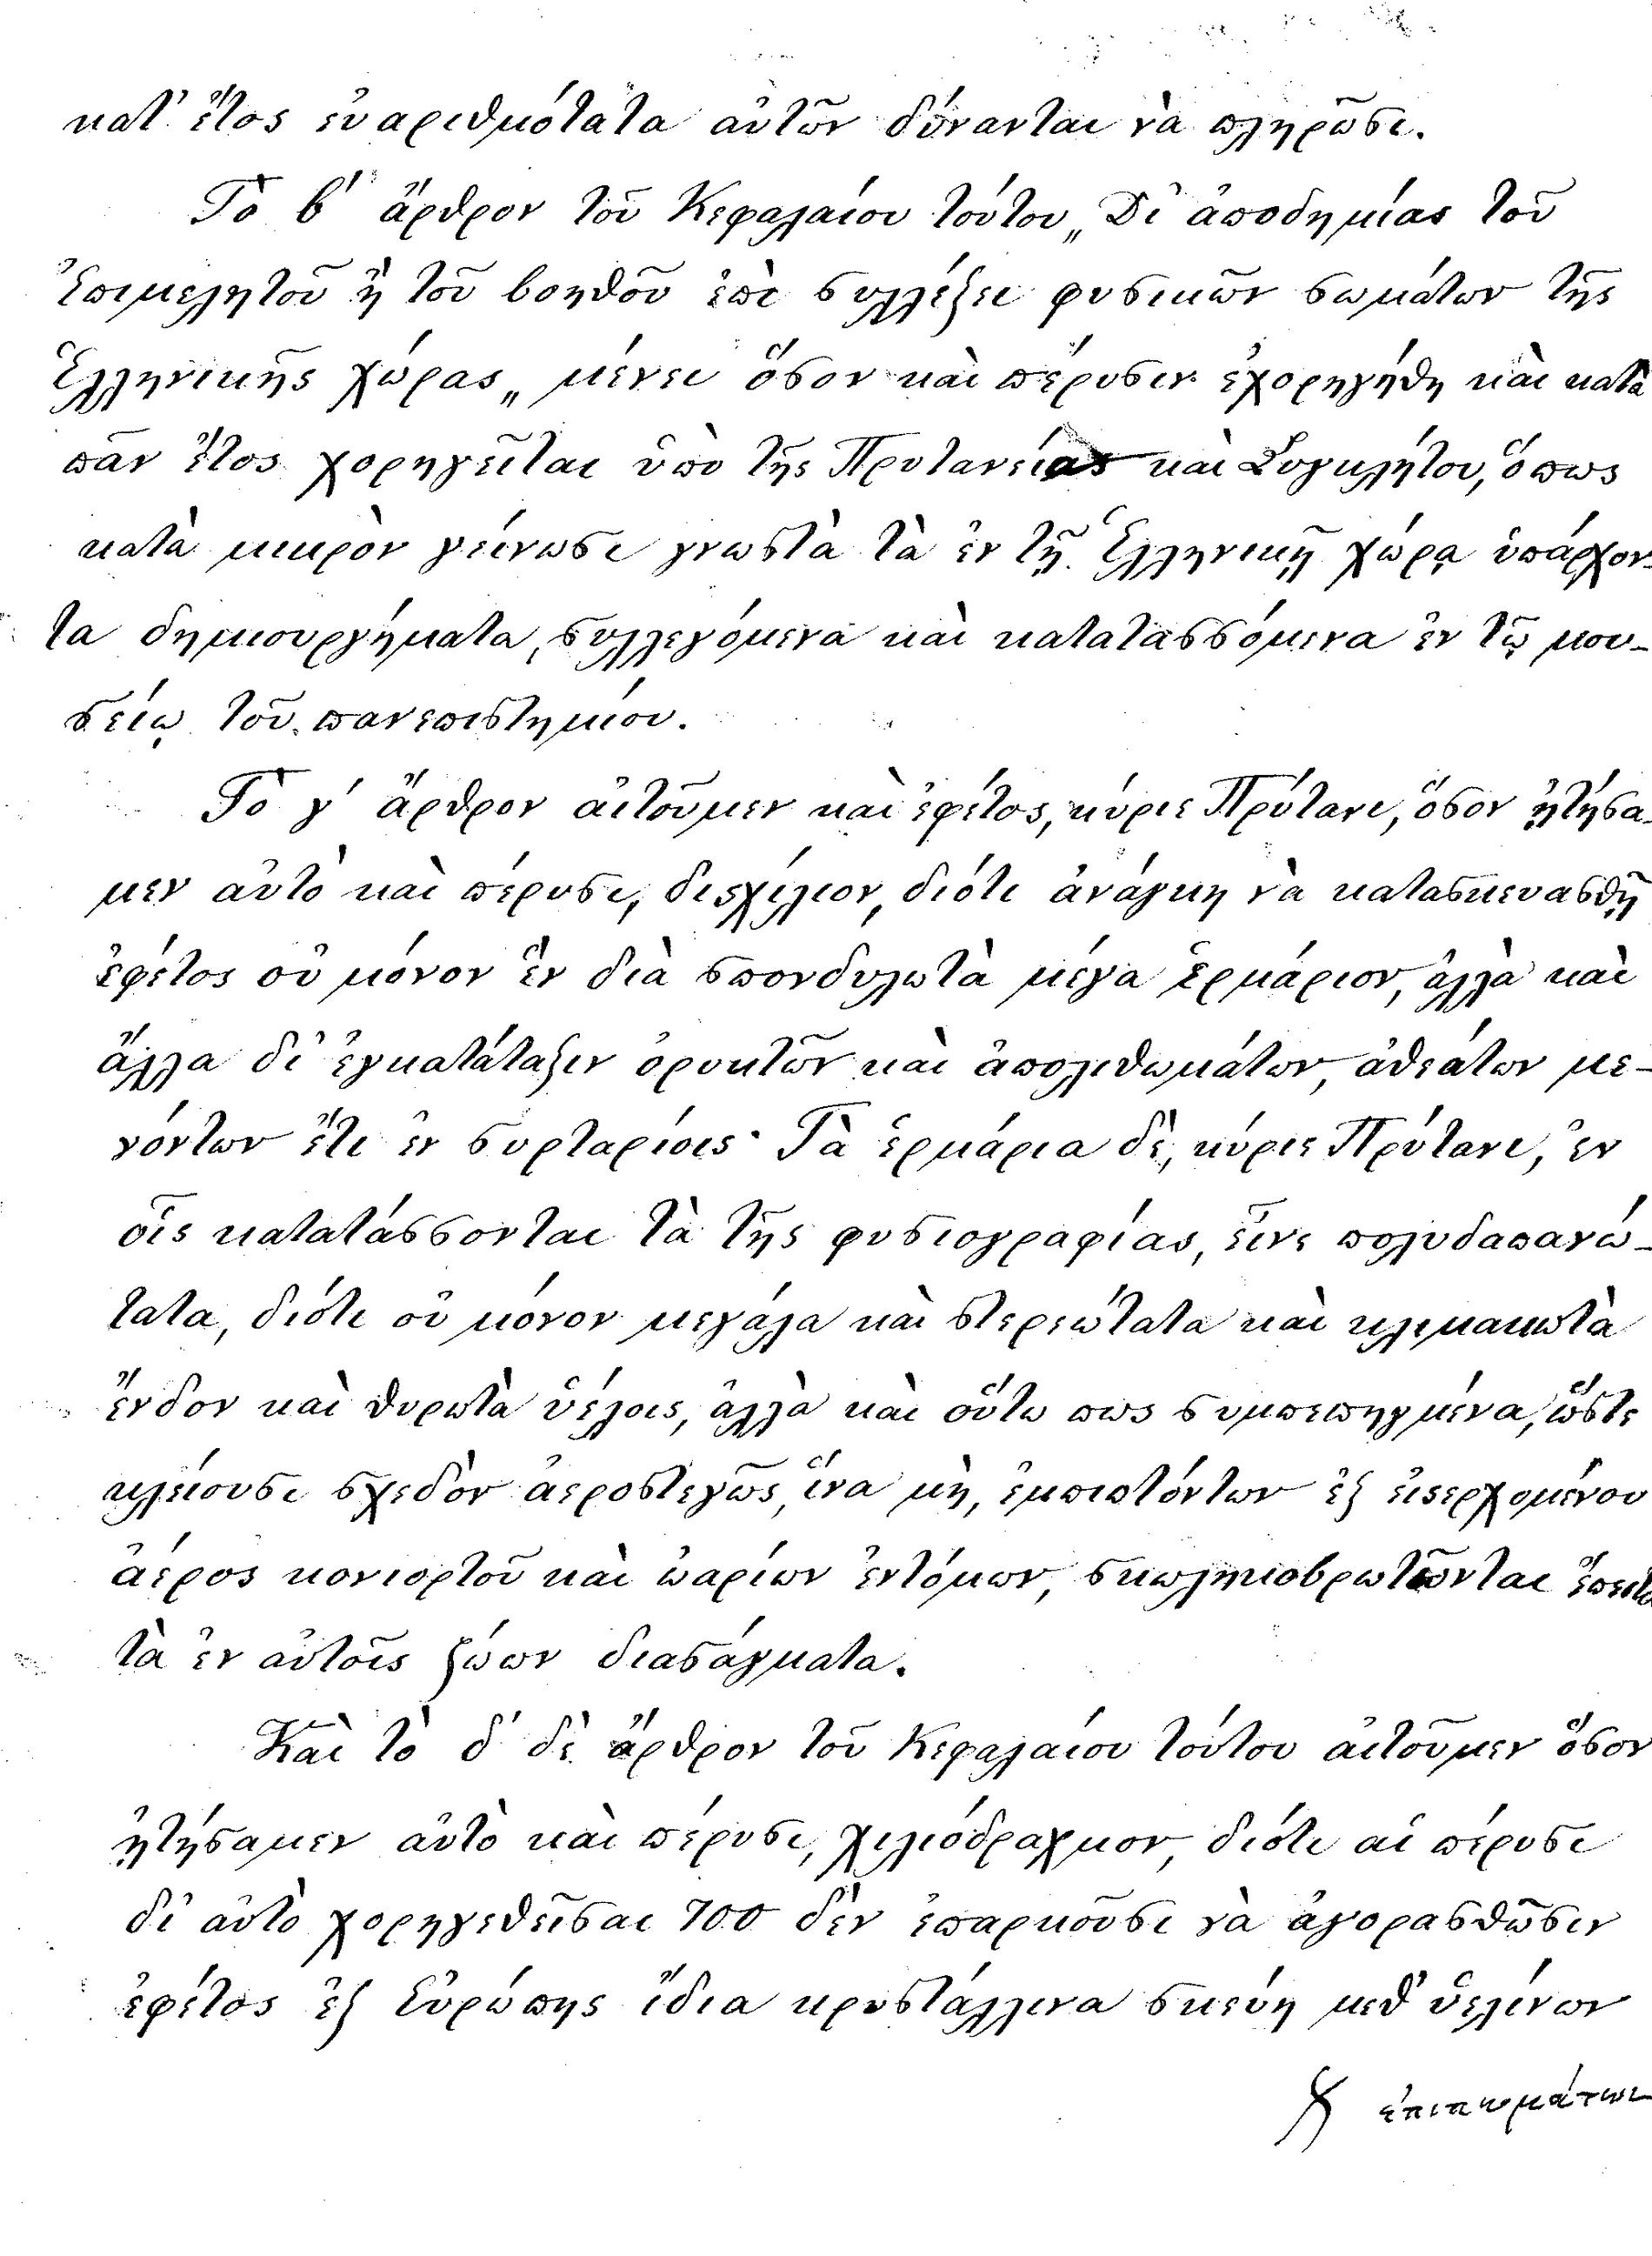 κατ' ἔτος εὐαριθμότατα αὐτῶν δύνανται νὰ πληρῶσι.
Τὸ β' ἄρθρον τοῦ Κεφαλαίου τούτου „Δι' ἀποδημίας τοῦ
Ἐπιμελητοῦ ἢ τοῦ βοηθοῦ ἐπὶ συλλέξει φυσικῶν σωμάτων τῆς
Ἑλληνικῆς χώρας„ μένει ὅσον καὶ πέρυσιν ἐχορηγήθη καὶ κατὰ
πᾶν ἔτος χορηγεῖται ὑπὸ τῆς Πρυτανείας καὶ Συγκλήτου, ὅπως
κατὰ μικρὸν γείνωσι γνωστὰ τὰ ἐν τῇ Ἑλληνικῇ χώρᾳ ὑπάρχον-
τα δημιουργήματα, συλλεγόμενα καὶ κατατασσόμενα ἐν τῷ μου-
σείῳ τοῦ πανεπιστημίου.
Τὸ γ' ἄρθρον αἰτοῦμεν καὶ ἐφέτος, κύριε Πρύτανι, ὅσον ᾐτήσα-
μεν αὐτὸ καὶ πέρυσι, δισχίλιον, διότι ἀνάγκη νὰ κατασκευασθῇ
ἐφέτος οὐ μόνον ἓν διὰ σπονδυλωτὰ μέγα ἑρμάριον, ἀλλὰ καὶ
ἄλλα δι' ἐγκατάταξιν ὀρυκτῶν καὶ ἀπολιθωμάτων, ἀθεάτων με-
νόντων ἔτι ἐν συρταρίοις· Τὰ ἑρμάρια δὲ, κύριε Πρύτανι, ἐν
οἷς κατατάσσονται τὰ τῆς φυσιογραφίας, εἶνε πολυδαπανώ-
τατα, διότι οὐ μόνον μεγάλα καὶ στερεώτατα καὶ κλιμακωτὰ
ἔνδον καὶ θυρωτὰ ὑέλοις, ἀλλὰ καὶ οὕτω πως συμπεπηγμένα, ὥστε
κλείουσι σχεδὸν ἀεροστεγῶς, ἵνα μὴ, ἐμπιπτόντων ἐξ εἰσερχομένου
ἀέρος κονιορτοῦ καὶ ὠαρίων ἐντόμων, σκωληκιοβρωτῶνται ἔπειτα
τὰ ἐν αὐτοῖς ζώων διασάγματα.
Καὶ τὸ δ' δὲ ἄρθρον τοῦ Κεφαλαίου τούτου αἰτοῦμεν ὅσον
ᾐτήσαμεν αὐτὸ καὶ πέρυσι, χιλιόδραχμον, διότι αἱ πέρυσι
δι' αὐτὸ χορηγηθεῖσαι 700 δὲν ἐπαρκοῦσι νὰ ἀγορασθῶσιν
ἐφέτος ἐξ Εὐρώπης ἴδια κρυστάλλινα σκεύη μεθ' ὑελίνων
ἐπιπωμάτων